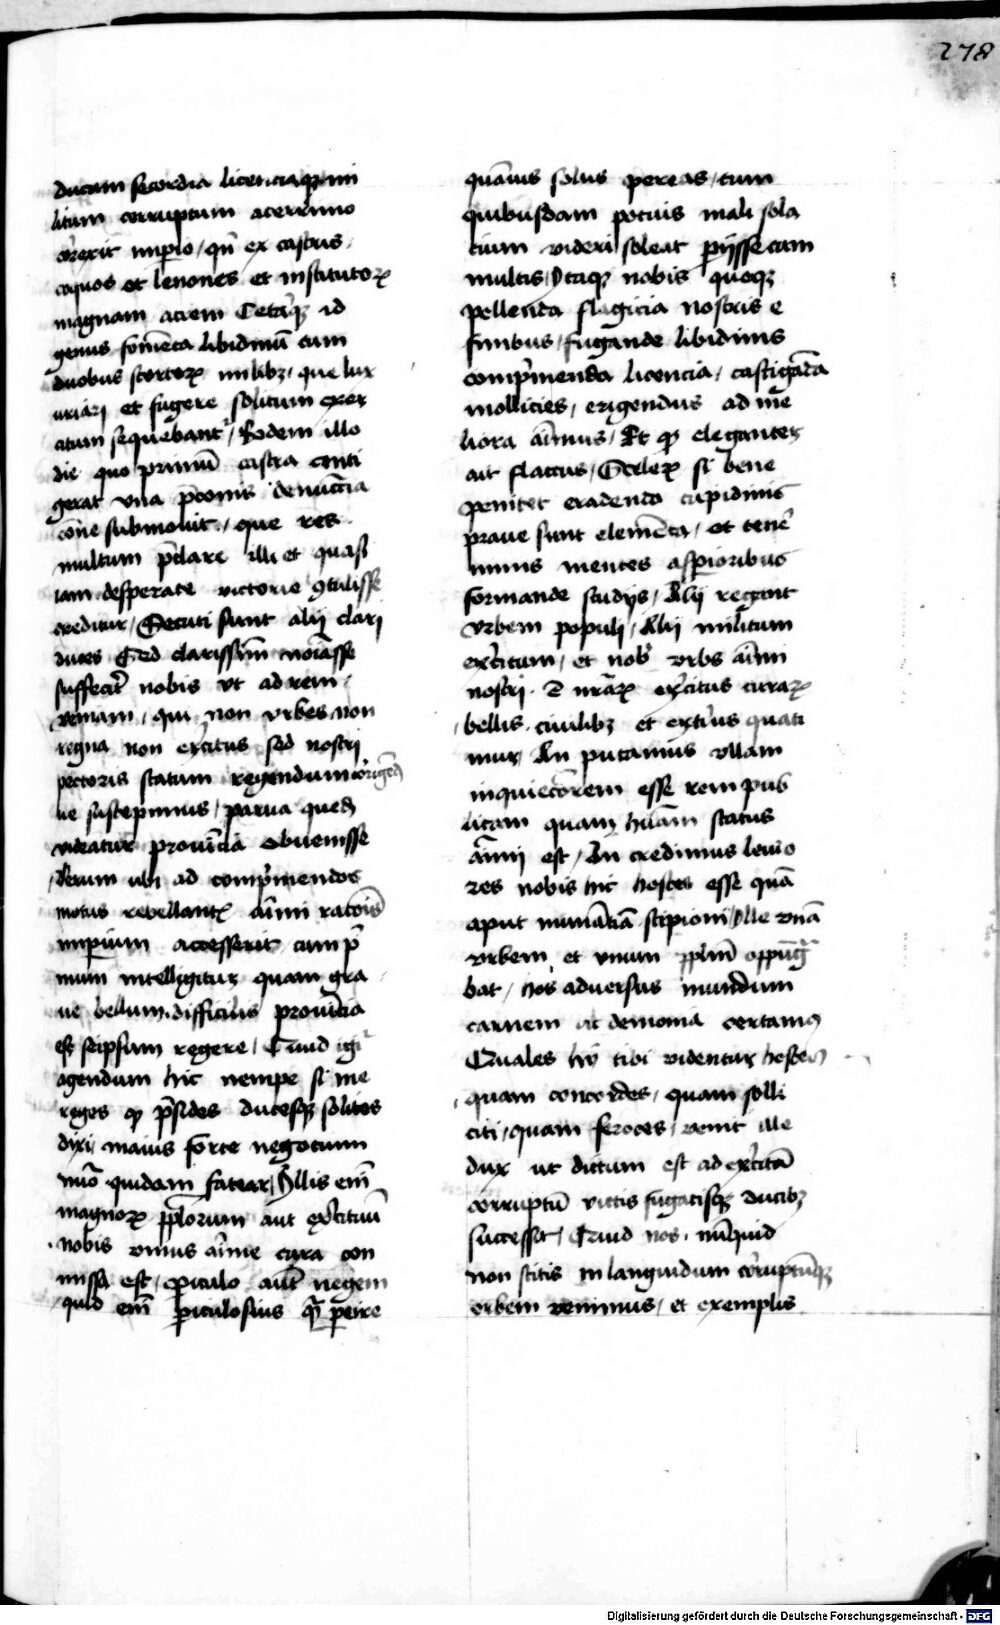 278
ducum secordia licenciaqꝫ mi
litum corruptum acerrimo
correxit imꝑio / qn̄ ex castris
coquos et lenones et institutoꝝ
magnam aciem Ceteraqꝫ id
genus fomēta libidinū cum
duobus scortoꝝ milibꝫ / que lux
uriari et fugere solitum exer
citum sequebant² / Eodem illo
die quo primū castra conti
gerat vna p̄conis denūccia
cōne submouit / que res
multum p̄clare illi et quasi
iam desperate victorie ꝯtulisse
creditur / Secuti sunt alij clari
duces Sed clarissim̄ noīasse
suffecerit nobis vt ad rem
veniam / qui non vrbes non
regna non exercitus sed nostri
pectoris statum regendum corrigēd
ue suscepimus / parua quedā
videatur prouīcia obuenisse
Verum ubi ad comprimendos
motus rebellantꝭ animi racōis
imperium accesserit / cum p̄
mum intelligitur quam gra
ue bellum difficilis prouīcia
est seipsum regere / Quid igi²
agendum hic nempe si me
reges qꝫ p̄sides ducesqꝫ solitos
dixi / maius forte negocium
nr̄o quidam fatear / Illis em̄
magnoꝝ pp̄lorum aut exercituū
nobis vnius anime cura con
missa est / ꝑiculo aut negem
quid em̄ ꝑiculosius q̄ ꝑeire
quāuis solus pereas / cum
quibusdam pocius mali sola
cium videri soleat ꝑijsse cum
multis / Itaqꝫ nobis quoqꝫ
pellenda flagicia nostris e
finibus / fugande libidines
comprimenda licencia / castigāda
mollicies / erigendus ad me
liora aīmus / Et qꝫ eleganter
ait flaccus / Sceleꝝ si bene
penitet eradenda cupidinis
praue sunt elemēta / et tene
nimis mentes asꝑioribus
formande studijs / Alij regant
vrbem populi / Alij militum
exercitum / et nob² vrbs aīmi
nostri · E nr̄aꝝ exercitus curaꝝ
bellis ciuilibꝫ et externis quati
mur / An putamus vllam
inquiecōrem esse rem pub
licam quam hūam status
aīmi est / An credimus leuio
res nobis hic hostes esse quā
aput numātiā scipioni / Ille vnā
vrbem et vnum pp̄lm̄ oppūg
bat / nos aduersus mundum
carnem et demonia certamus
Quales hij tibi videntur hostes
quam concordes / quam solli
citi / quam feroces / venit ille
dux ut dictum est ad exercitū
corruptū victis fugatisqꝫ ducibꝫ
successit / Quid nos nūquid
non scitis in languidum corruptūqꝫ
orbem venimus / et exemplis
Digitalisierung gefördert durch die Deutsche Forschungsgemeinschaft - DFG